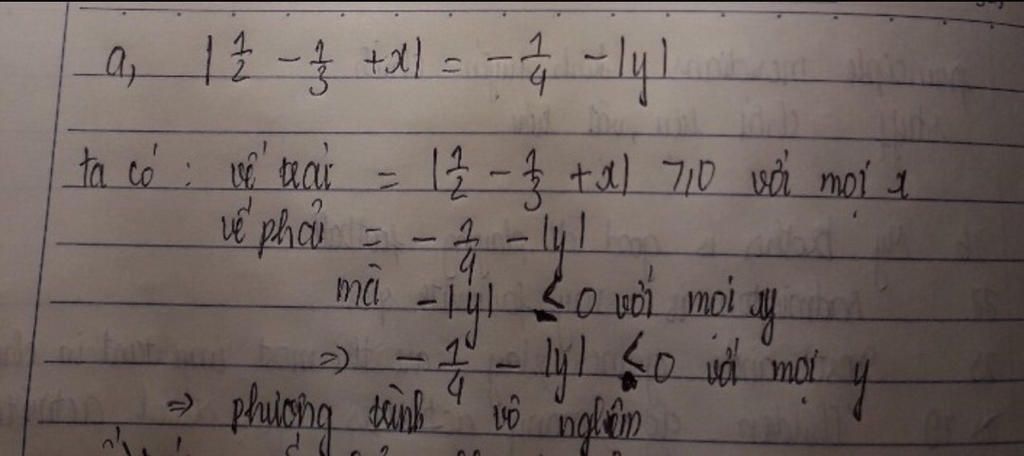 a, |1/2 - 1/3 + x| = - 1/4 - |y|
ta có : vế trái = |1/2 - 1/3 + x| ≥ 0 với mọi x
vế phải = - 1/4 - |y|
mà - |y| ≤ 0 với mọi y
=> - 1/4 - |y| ≤ 0 với mọi y
=> phương trình vô nghiệm